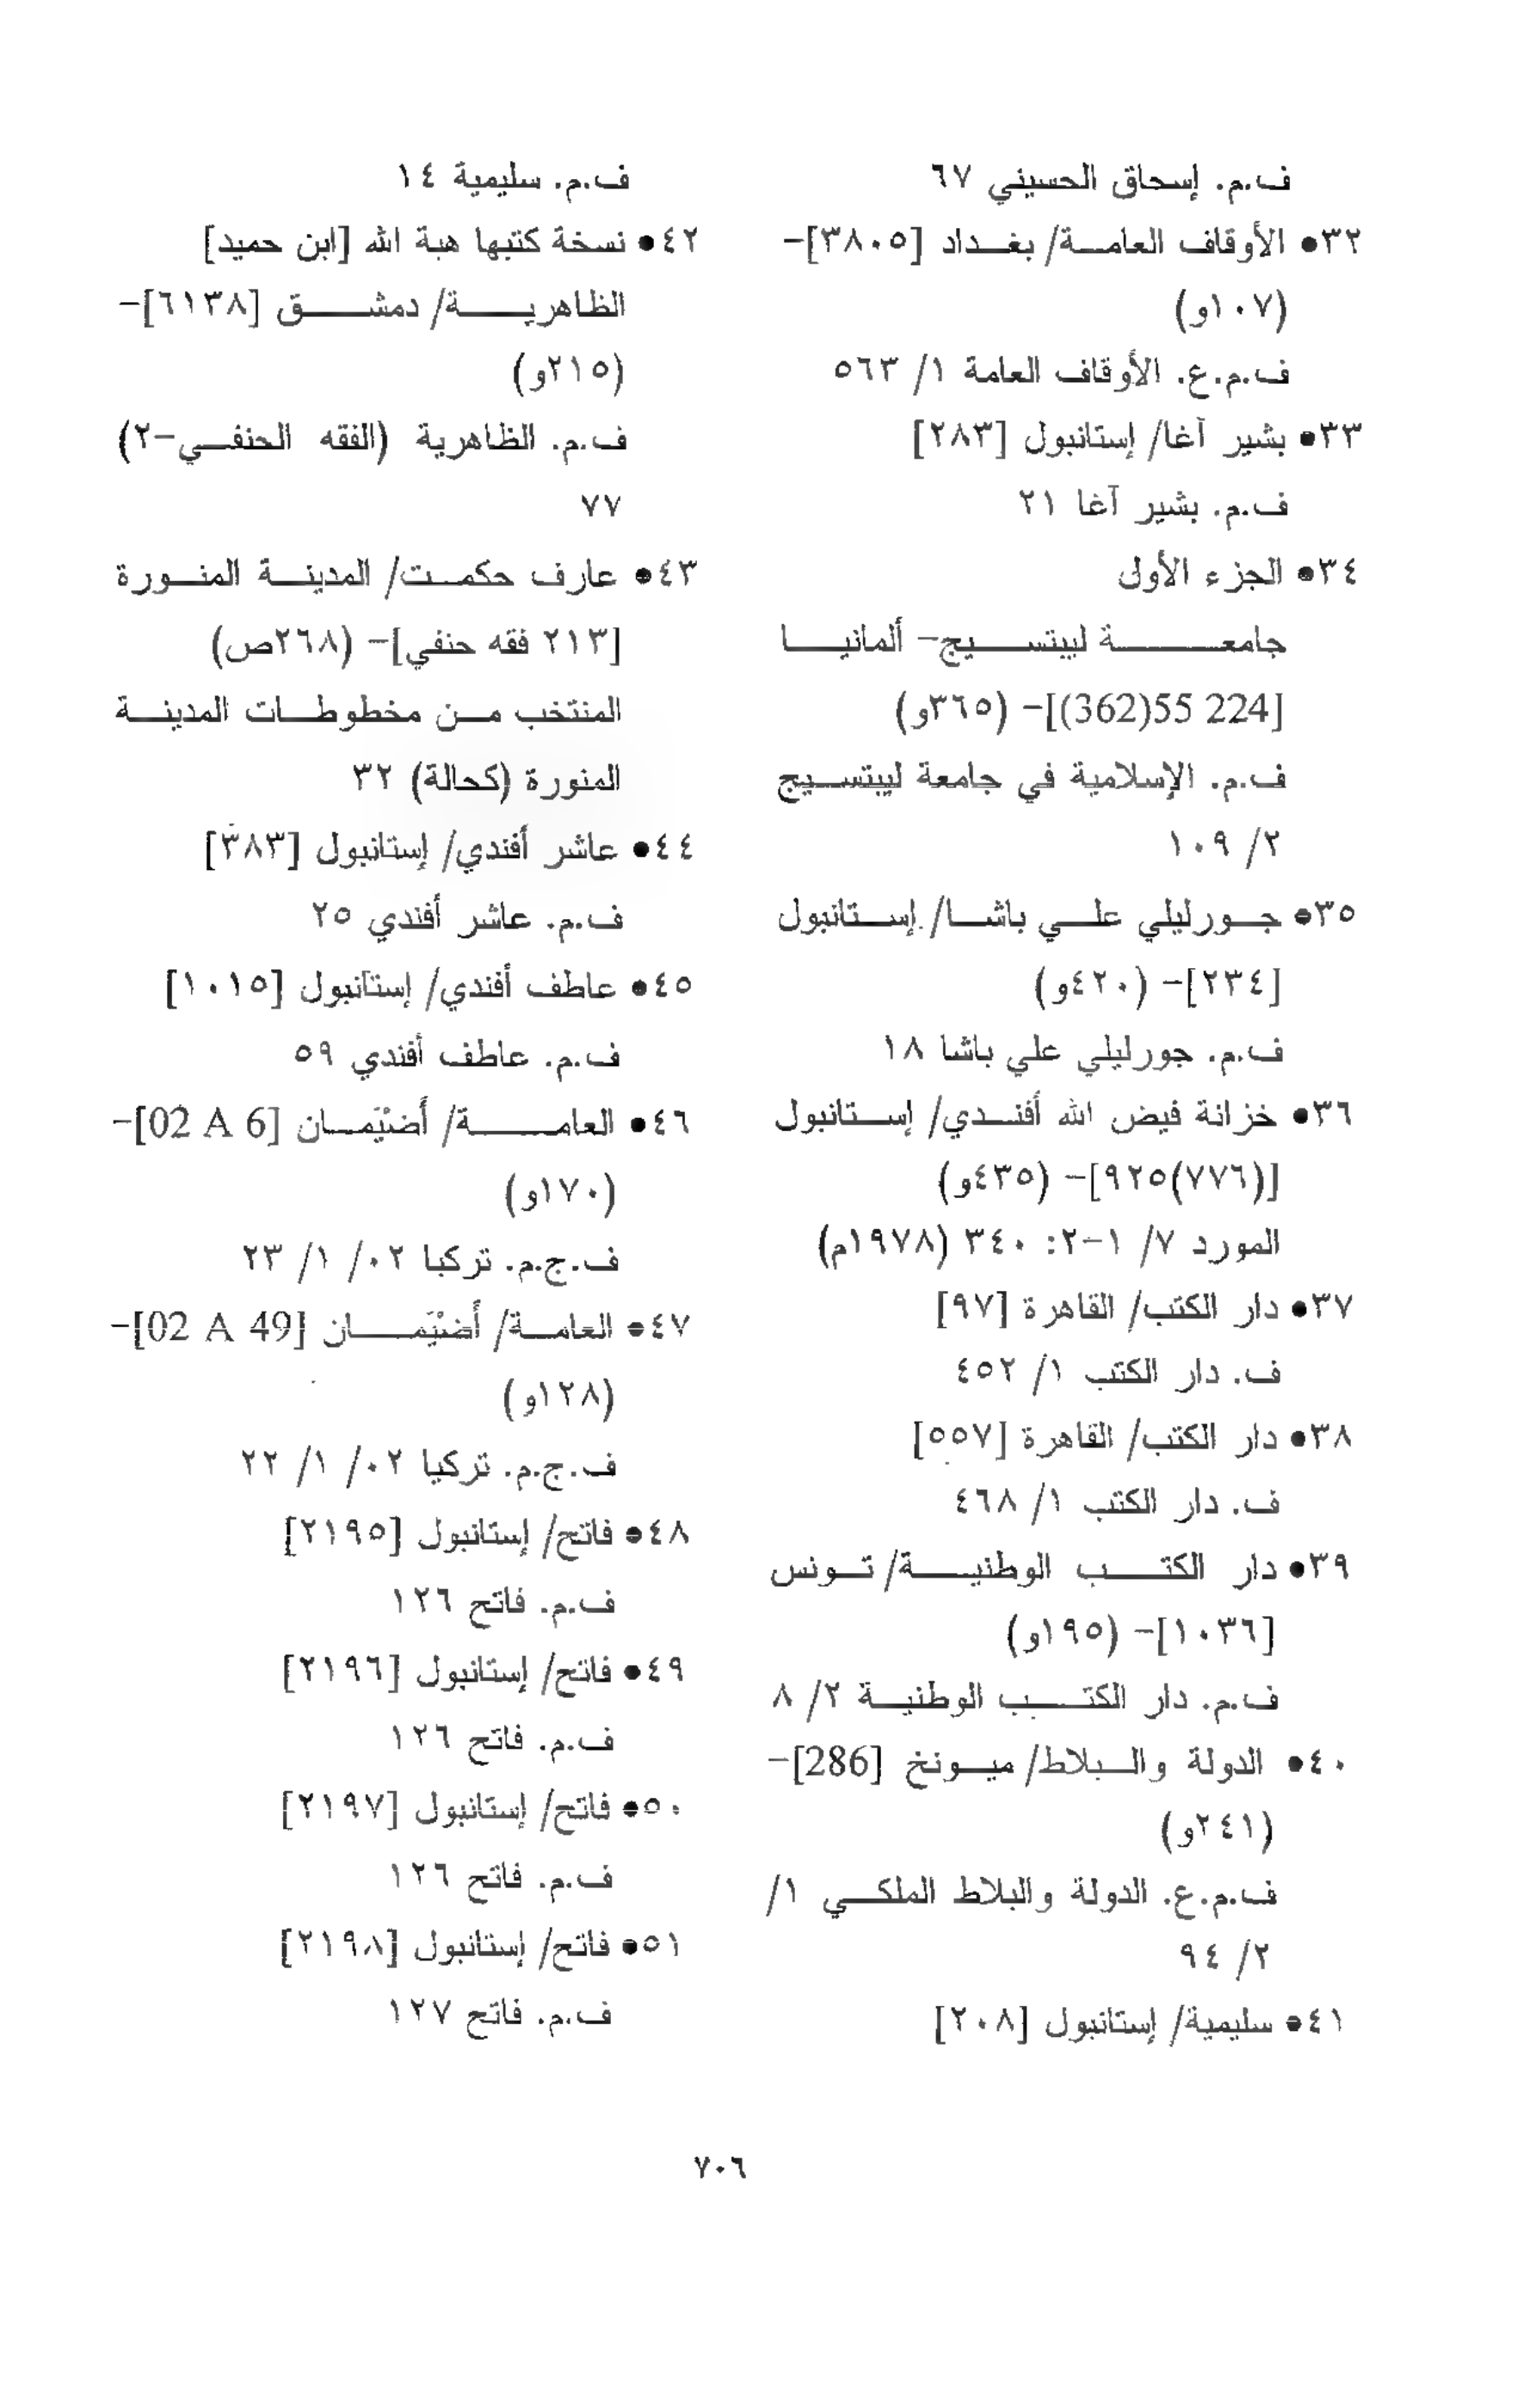 ف.م. إسحاق الحسيني ٦٧
٣٢• الأوقاف العامة/ بغداد [٣٨٠٥]-
(١٠٧و)
ف.م.ع. الأوقاف العامة ١/ ٥٦٣
٣٣• بشير آغا/ إستانبول [٢٨٣]
ف.م. بشير آغا ٢١
٣٤• الجزء الأول
جامعة ليبتسيج- ألمانيا
[224 55(362)]- (٣٦٥و)
ف.م. الإسلامية في جامعة ليبتسيج
٢/ ١٠٩
٣٥• جورليلي علي باشا/ إستانبول
[٢٣٤]- (٤٢٠و)
ف.م. جورليلي علي باشا ١٨
٣٦• خزانة فيض الله أفندي/ إستانبول
[(٧٧٦)٩٢٥]- (٤٣٥و)
المورد ٧/ ١-٢: ٣٤٠ (١٩٧٨م)
٣٧• دار الكتب/ القاهرة [٩٧]
ف. دار الكتب ١/ ٤٥٢
٣٨• دار الكتب/ القاهرة [٥٥٧]
ف. دار الكتب ١/ ٤٦٨
٣٩• دار الكتب الوطنية/ تونس
[١٠٣٦]- (١٩٥و)
ف.م. دار الكتب الوطنية ٢/ ٨
٤٠• الدولة والبلاط/ ميونخ [286]-
(٢٤١و)
ف.م.ع. الدولة والبلاط الملكي ١/
٢/ ٩٤
٤١• سليمية/ إستانبول [٢٠٨]
ف.م. سليمية ١٤
٤٢• نسخة كتبها هبة الله [ابن حميد]
الظاهرية/ دمشق [٦١٣٨]-
(٢١٥و)
ف.م. الظاهرية (الفقه الحنفي-٢)
٧٧
٤٣• عارف حكمت/ المدينة المنورة
[٢١٣ فقه حنفي]- (٢٦٨ص)
المنتخب من مخطوطات المدينة
المنورة (كحالة) ٣٢
٤٤• عاشر أفندي/ إستانبول [٣٨٣]
ف.م. عاشر أفندي ٢٥
٤٥• عاطف أفندي/ إستانبول [١٠١٥]
ف.م. عاطف أفندي ٥٩
٤٦• العامة/ أَضِيَمان [02 A 6]-
(١٧٠و)
ف.ج.م. تركيا ٠٢/ ١/ ٢٣
٤٧• العامة/ أَضِيَمان [02 A 49]-
(١٢٨و)
ف.ج.م. تركيا ٠٢/ ١/ ٢٢
٤٨• فاتح/ إستانبول [٢١٩٥]
ف.م. فاتح ١٢٦
٤٩• فاتح/ إستانبول [٢١٩٦]
ف.م. فاتح ١٢٦
٥٠• فاتح/ إستانبول [٢١٩٧]
ف.م. فاتح ١٢٦
٥١• فاتح/ إستانبول [٢١٩٨]
ف.م. فاتح ١٢٧
٧٠٦